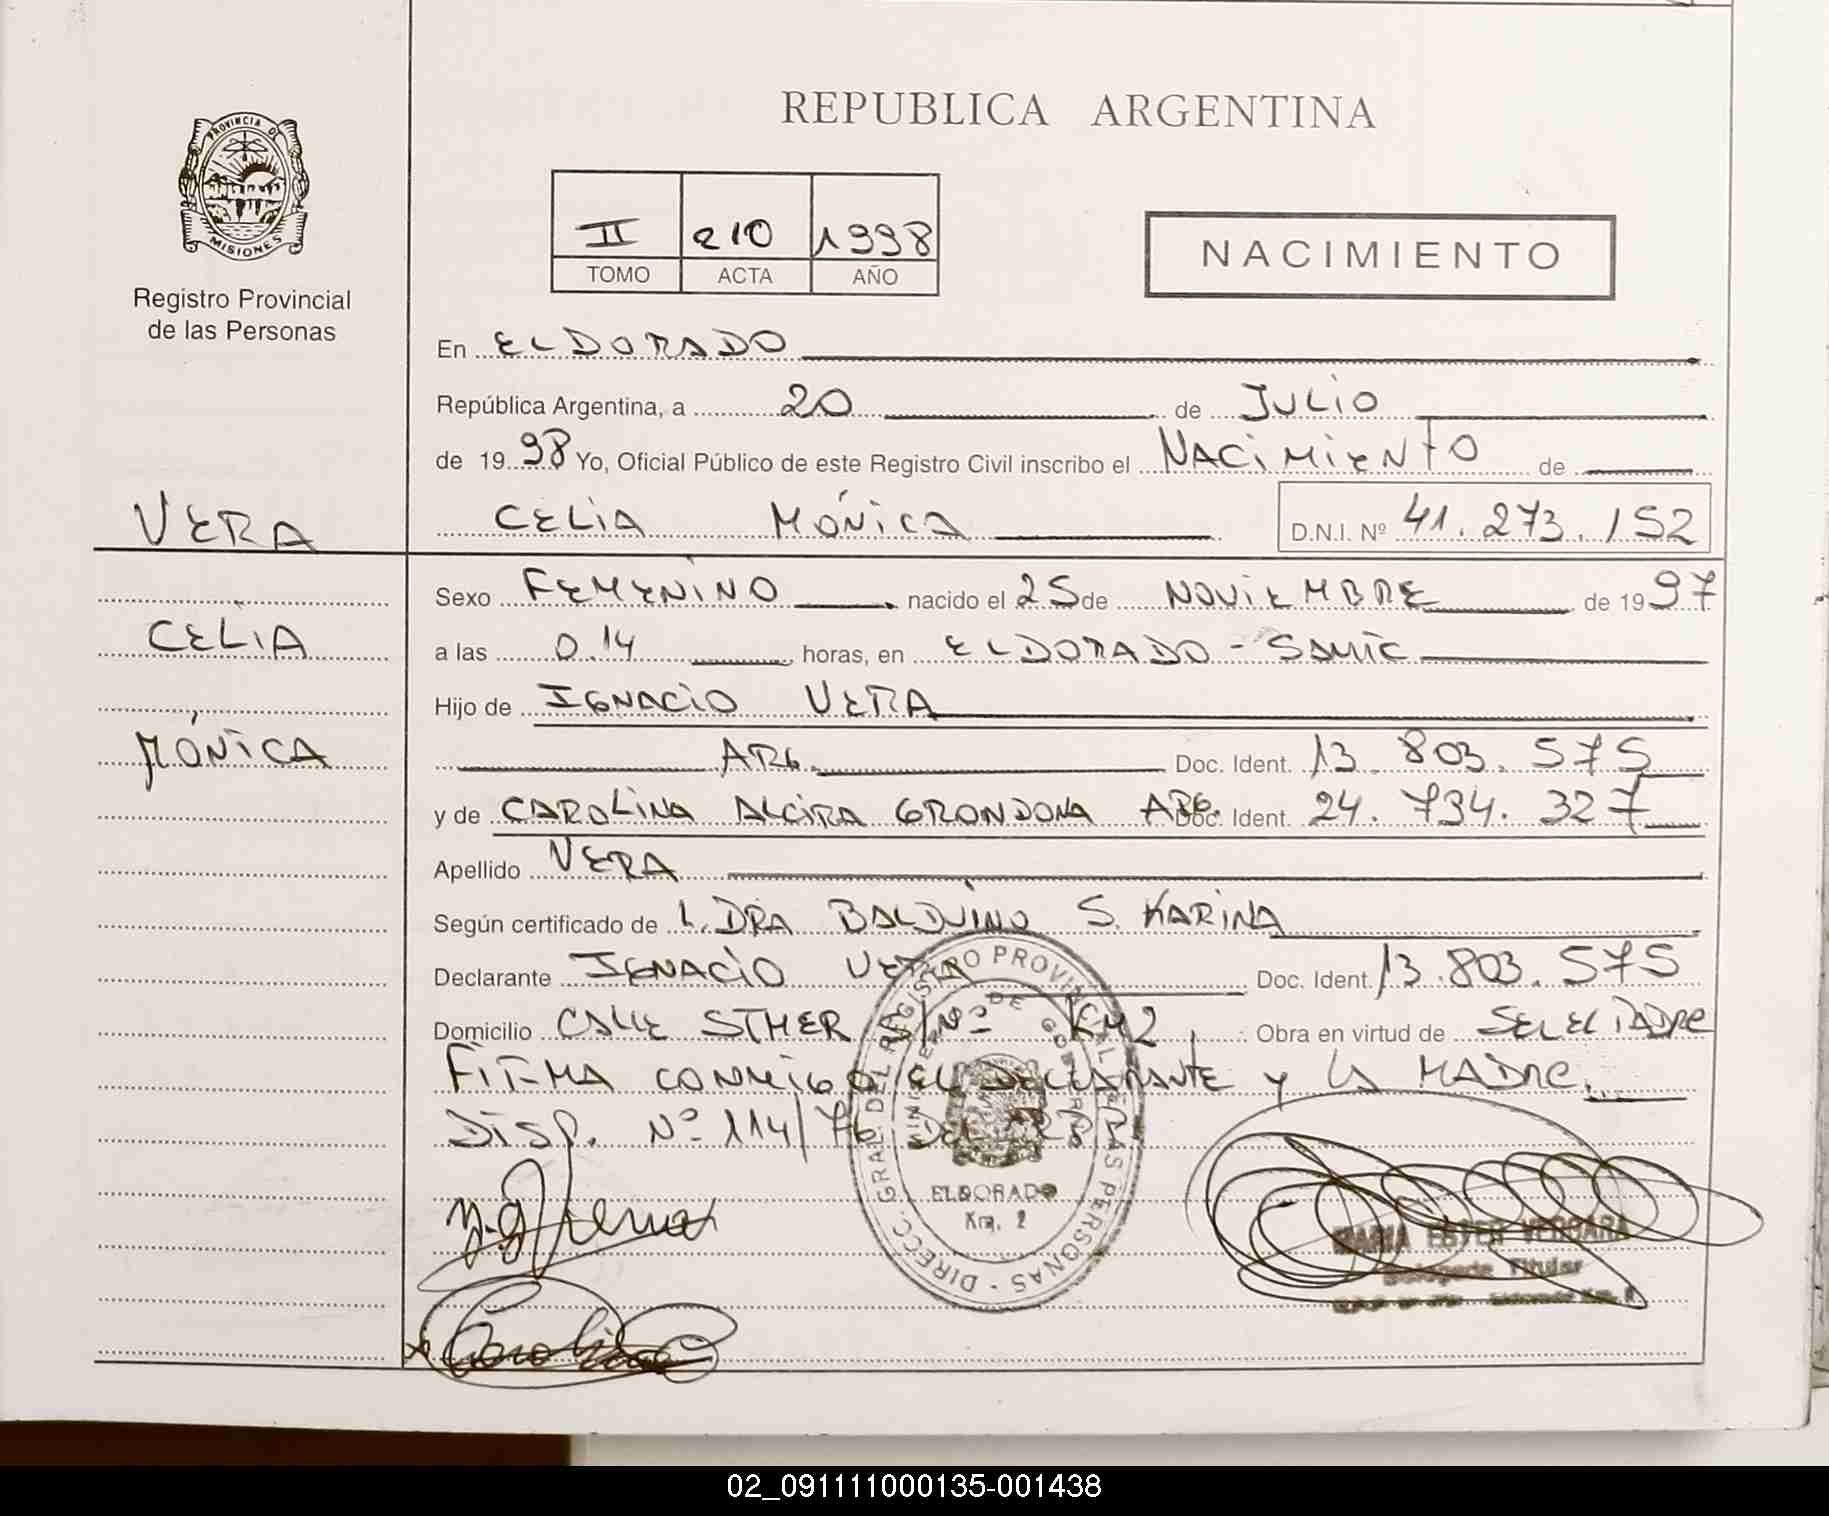 REPUBLICA ARGENTINA
PROVINCIA DE
MISIONES
Registro Provincial
de las Personas
II 210 1998
TOMO ACTA AÑO
NACIMIENTO
En ELDORADO
República Argentina, a 20 de JULIO
de 1998 Yo, Oficial Público de este Registro Civil inscribo el NACIMIENTO de
VERA
CELIA MÓNICA D.N.I. Nº 41.273.152
Sexo FEMENINO nacido el 25 de NOVIEMBRE de 1997
CELIA
a las 0.14 horas, en ELDORADO - SAMIC
Hijo de IGNACIO VERA
MÓNICA
ARG. Doc. Ident. 13.803.575
y de CAROLINA ALCIRA GRONDONA ARG. Doc. Ident. 24.734.327
Apellido VERA
Según certificado de L. DRA BALDUINO S. KARINA
Declarante IGNACIO VERA Doc. Ident. 13.803.575
Domicilio CALLE STHER Nº KM 2 Obra en virtud de SER EL PADRE
FIRMA CONMIGO EL DECLARANTE Y LA MADRE.
DISP. Nº 114/76 DEL R.P.P.
DIRECC. GRAL DEL REGISTRO PROVINCIAL DE LAS PERSONAS
MINISTERIO DE GOBIERNO
ELDORADO
Km. 2
MARIA ESTER VERGARA
Delegada Titular
02_091111000135-001438